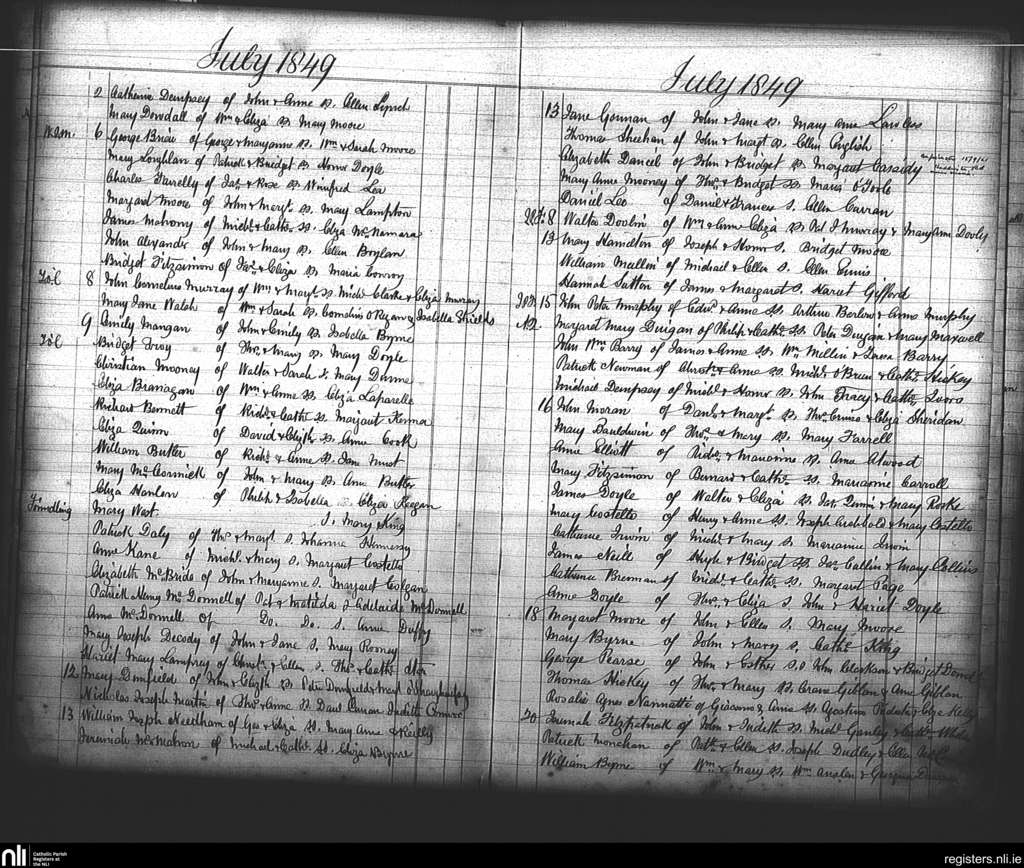 July 1849
2 Catherine Dempsey of John & Anne S. Ellen Lynch
Mary Dowdall of Wm & Eliza S. Mary Moore
6 George Briai of George & Maryanne S. Wm & Sarah Moore
Mary Loughlan of Patrick & Bridget S. Honor Doyle
Charles Farrelly of Jas. & Rose S. Winifred Lea
Margaret Moore of John & Margt. S. Mary Lampton
James Mahony of Michl. & Cathe. S. Eliza McNamara
John Alexander of John & Mary S. Ellen Boylan
Bridget Fitzsimon of Jas. & Eliza S. Maria Conroy
8 John Cornelius Murray of Wm & Margt. S. Michl. Clarke & Eliza Murray
Mary Jane Walsh of Wm & Sarah S. Cornelius O'Ryan & Isabella Shields
9 Emily Mangan of John & Emily S. Isabella Byrne
Bridget of Thos. & Mary S. Mary Doyle
Christian Mooney of Walter & Sarah S. Mary Dunne
Eliza Branagan of Wm & Anne S. Eliza Laparelle
Richard Bennett of Richd. & Cathe. S. Margaret Kenna
Eliza Quinn of David & Elizth. S. Anne Cook
William Butler of Richd. & Anne S. Jane
Mary McCormick of John & Mary S. Ann Butler
Eliza Hanlon of Philip & Isabella S. Eliza Keegan
Foundling Mary West. S. Mary King
Patrick Daly of Thos. & Margt. S. Johanna Hennessy
Anne Kane of Michl. & Mary S. Margaret Costello
Elizabeth McBride of John & Maryanne S. Margaret Colgan
Patrick Henry McDonnell of Pat & Matilda S. Adelaide McDonnell
Anne McDonnell of Do. Do. S. Annie Duffy
Mary Joseph Decody of John & Jane S. Mary Rooney
Hariet Mary Lamprey of Christr. & Ellen S. Thos. & Cathe.
12 Mary Dumfield of John & Elizth. S. Peter Dumfield & Margt. O'Shaughnessy
Nicholas Joseph Martin of Thos. & Anne S. Danl. Judith Connor
13 William Joseph Needham of Geo & Eliza S. Mary Anne Reilly
Jeremiah McMahon of Michael & Cathe. S. Eliza Byrne
July 1849
13 Jane Gorman of John & Jane S. Mary Anne Lawless
Thomas Sheehan of John & Margt. S. Ellen English
Elizabeth Daniel of John & Bridget S. Margaret Cassidy
Mary Anne Mooney of Thos. & Bridget S. Maria O'Toole
Daniel Leo of Daniel & Frances S. Ellen Curran
8 Walter Doolin of Wm & Anne Eliza S. Pat J Murray & Mary Anne Dooley
13 Mary Hamilton of Joseph & Honor S. Bridget Moore
William Mullin of Michael & Ellen S. Ellen Ennis
Hannah Sutton of James & Margaret S. Hariet Gifford
15 John Peter Murphy of Edwd. & Anne S. Arthur Barlow & Anne Murphy
Margaret Mary Duigan of Philip & Cathe. S. Peter Duigan & Mary Maxwell
John Wm Barry of James & Anne S. Wm Millin & Teresa Barry
Patrick Newman of Christr. & Anne S. Michl. O'Brien & Cathe. Hickey
Michael Dempsey of Michl. & Honor S. John Tracy & Cathe. Doors
16 John Moran of Danl. & Margt. S. Thos. Cruise & Eliza Sheridan
Mary Bauldwin of Thos. & Mary S. Mary Farrell
Anne Elliott of Richd. & Marianne S. Anne Atwood
Mary Fitzsimon of Bernard & Cathe. S. Marianne Carroll
James Doyle of Walter & Eliza S. Jas. Quinn & Mary Roske
Mary Costello of Henry & Anne S. Joseph Archbold & Mary Costello
Catharine Irwin of Michl. & Mary S. Marianne Irwin
James Neill of Hugh & Bridget S. Jas. Callin & Mary Collins
Catherine Brennan of Michl. & Cathe. S. Margaret Page
Anne Doyle of Thos. & Eliza S. John & Hariet Doyle
18 Margaret Moore of John & Ellen S. Mary Moore
Mary Byrne of John & Mary S. Cathe. King
George Pearse of John & Esther S. John Markam & Bridget Dowd
Thomas Hickey of Thos. & Mary S. Giblan & Anne Giblan
Rosalie Agnes Nannetti of Giacomo & Anne S. Agostino Podesta & Eliza Kelly
20 Jeremiah Fitzpatrick of John & Judith S. Michl. Ganley & Cathe. White
Patrick Monehan of Patk. & Ellen S. Joseph Dudley & Ellen
William Byrne of Wm & Mary S. Wm & Georgina
nli
Catholic Parish
Registers at
the NLI
registers.nli.ie